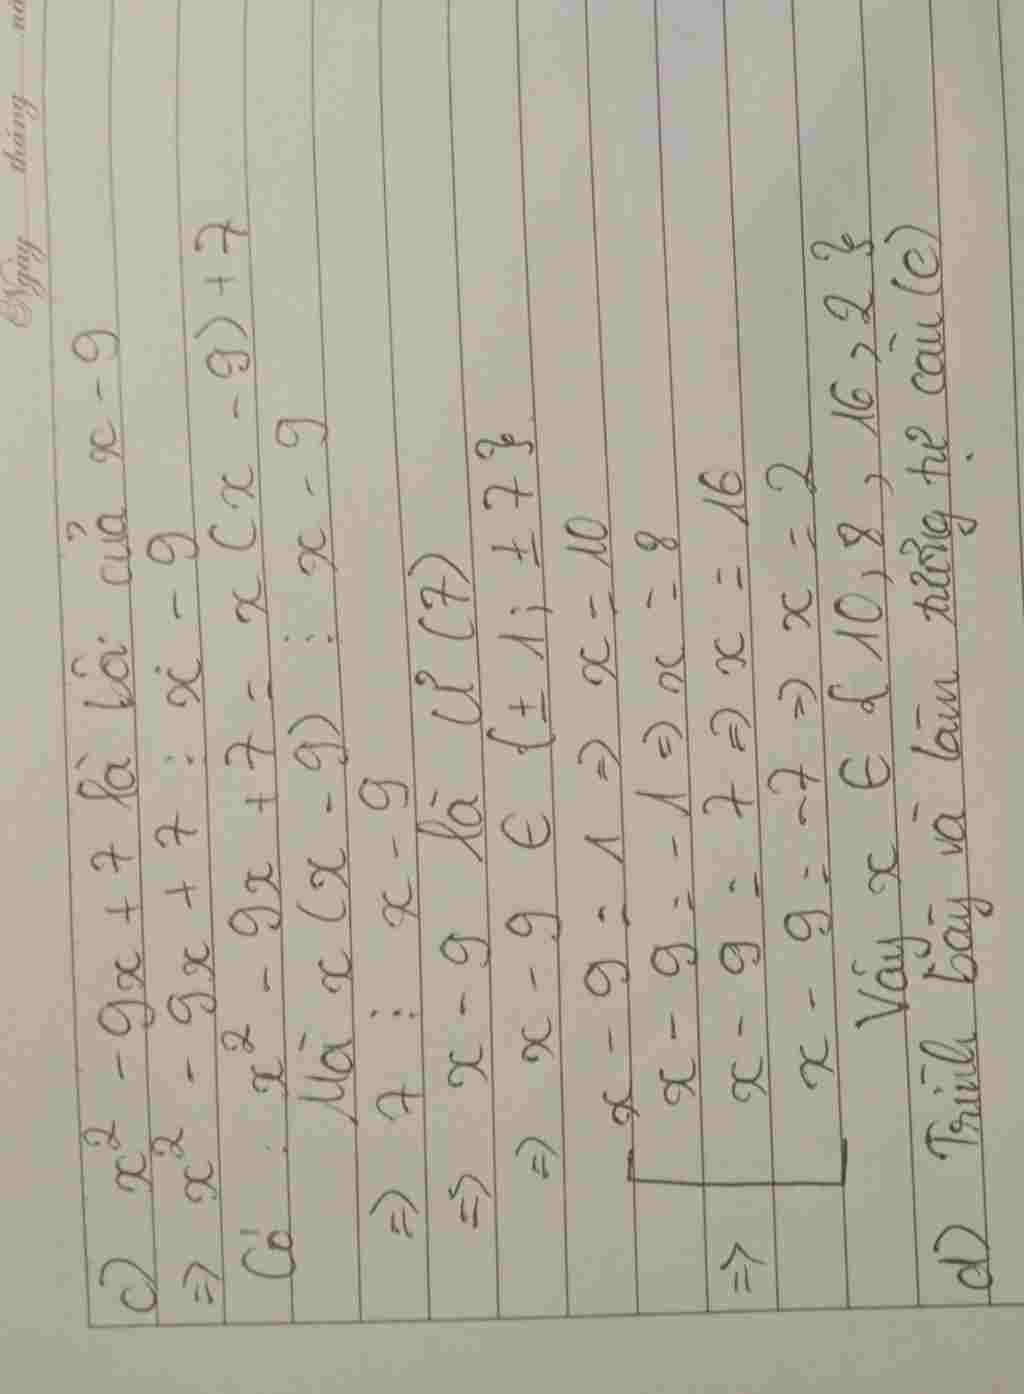 Ngày tháng
c) x² - 9x + 7 là bội của x - 9
=> x² - 9x + 7 ⋮ x - 9
Có : x² - 9x + 7 = x (x - 9) + 7
Mà x (x - 9) ⋮ x - 9
=> 7 ⋮ x - 9
=> x - 9 là Ư (7)
=> x - 9 ∈ {± 1; ± 7}
x - 9 = 1 => x = 10
x - 9 = - 1 => x = 8
=> x - 9 = 7 => x = 16
x - 9 = -7 => x = 2
Vậy x ∈ {10, 8, 16, 2}
d) Trình bày và làm tương tự câu (c)